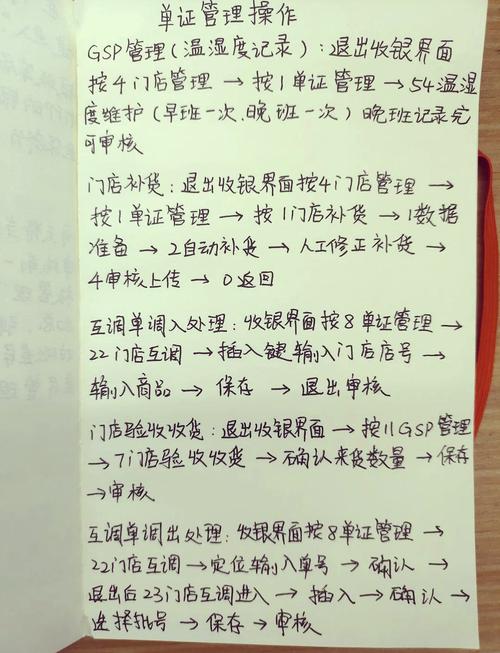 单证管理操作
GSP管理(温湿度记录):退出收银界面
按4门店管理→按1单证管理→54温湿
度维护(早班一次、晚班一次)晚班记录完
可审核
门店补货:退出收银界面按4门店管理→
按1单证管理→按1门店补货→1数据
准备→2自动补货→人工修正补货→
4审核上传→0返回
互调单调入处理:收银界面按8单证管理→
22门店互调→插入键输入门店店号→
输入商品→保存→退出审核
门店验收收货:退出收银界面→按11GSP管理
→7门店验收收货→确认来货数量→保存
→审核
互调单调出处理:收银界面按8单证管理→
22门店互调→定位输入单号→确认→
退出后23门店互调进入→插入→确认→
选择批号→保存→审核